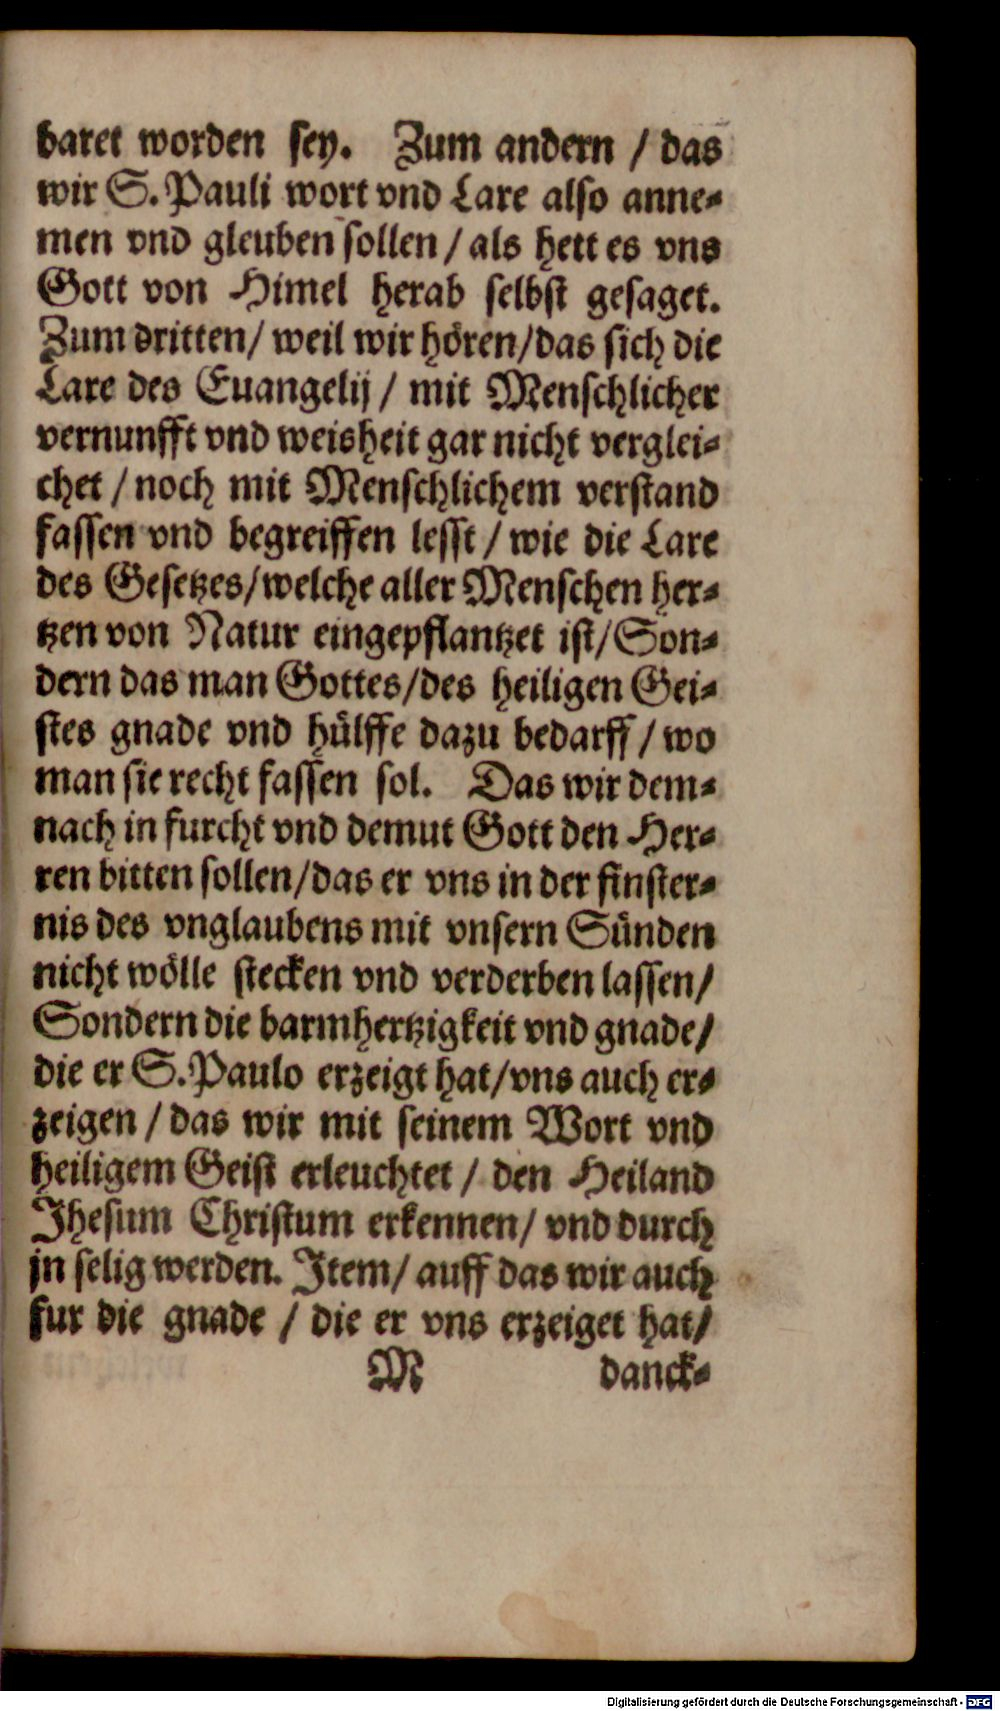 baret worden sey. Zum andern / das
wir S. Pauli wort vnd Lare also anne⸗
men vnd gleuben sollen / als hett es vns
Gott von Himel herab selbst gesaget.
Zum dritten / weil wir hören / das sich die
Lare des Euangelij / mit Menschlicher
vernunfft vnd weisheit gar nicht verglei⸗
chet / noch mit Menschlichem verstand
fassen vnd begreiffen lesst / wie die Lare
des Gesetzes / welche aller Menschen her⸗
tzen von Natur eingepflantzet ist / Son⸗
dern das man Gottes / des heiligen Gei⸗
stes gnade vnd hülffe dazu bedarff / wo
man sie recht fassen sol. Das wir dem⸗
nach in furcht vnd demut Gott den Her⸗
ren bitten sollen / das er vns in der finster⸗
nis des vnglaubens mit vnsern Sünden
nicht wölle stecken vnd verderben lassen /
Sondern die barmhertzigkeit vnd gnade /
die er S. Paulo erzeigt hat / vns auch er⸗
zeigen / das wir mit seinem Wort vnd
heiligem Geist erleuchtet / den Heiland
Jhesum Christum erkennen / vnd durch
jn selig werden. Item / auff das wir auch
fur die gnade / die er vns erzeiget hat /
M danck⸗
Digitalisierung gefördert durch die Deutsche Forschungsgemeinschaft - DFG